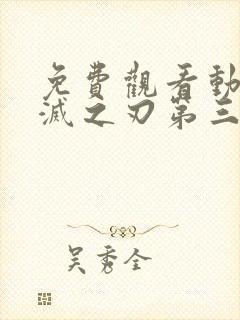 免費觀看動
滅之刃第三
吴秀全